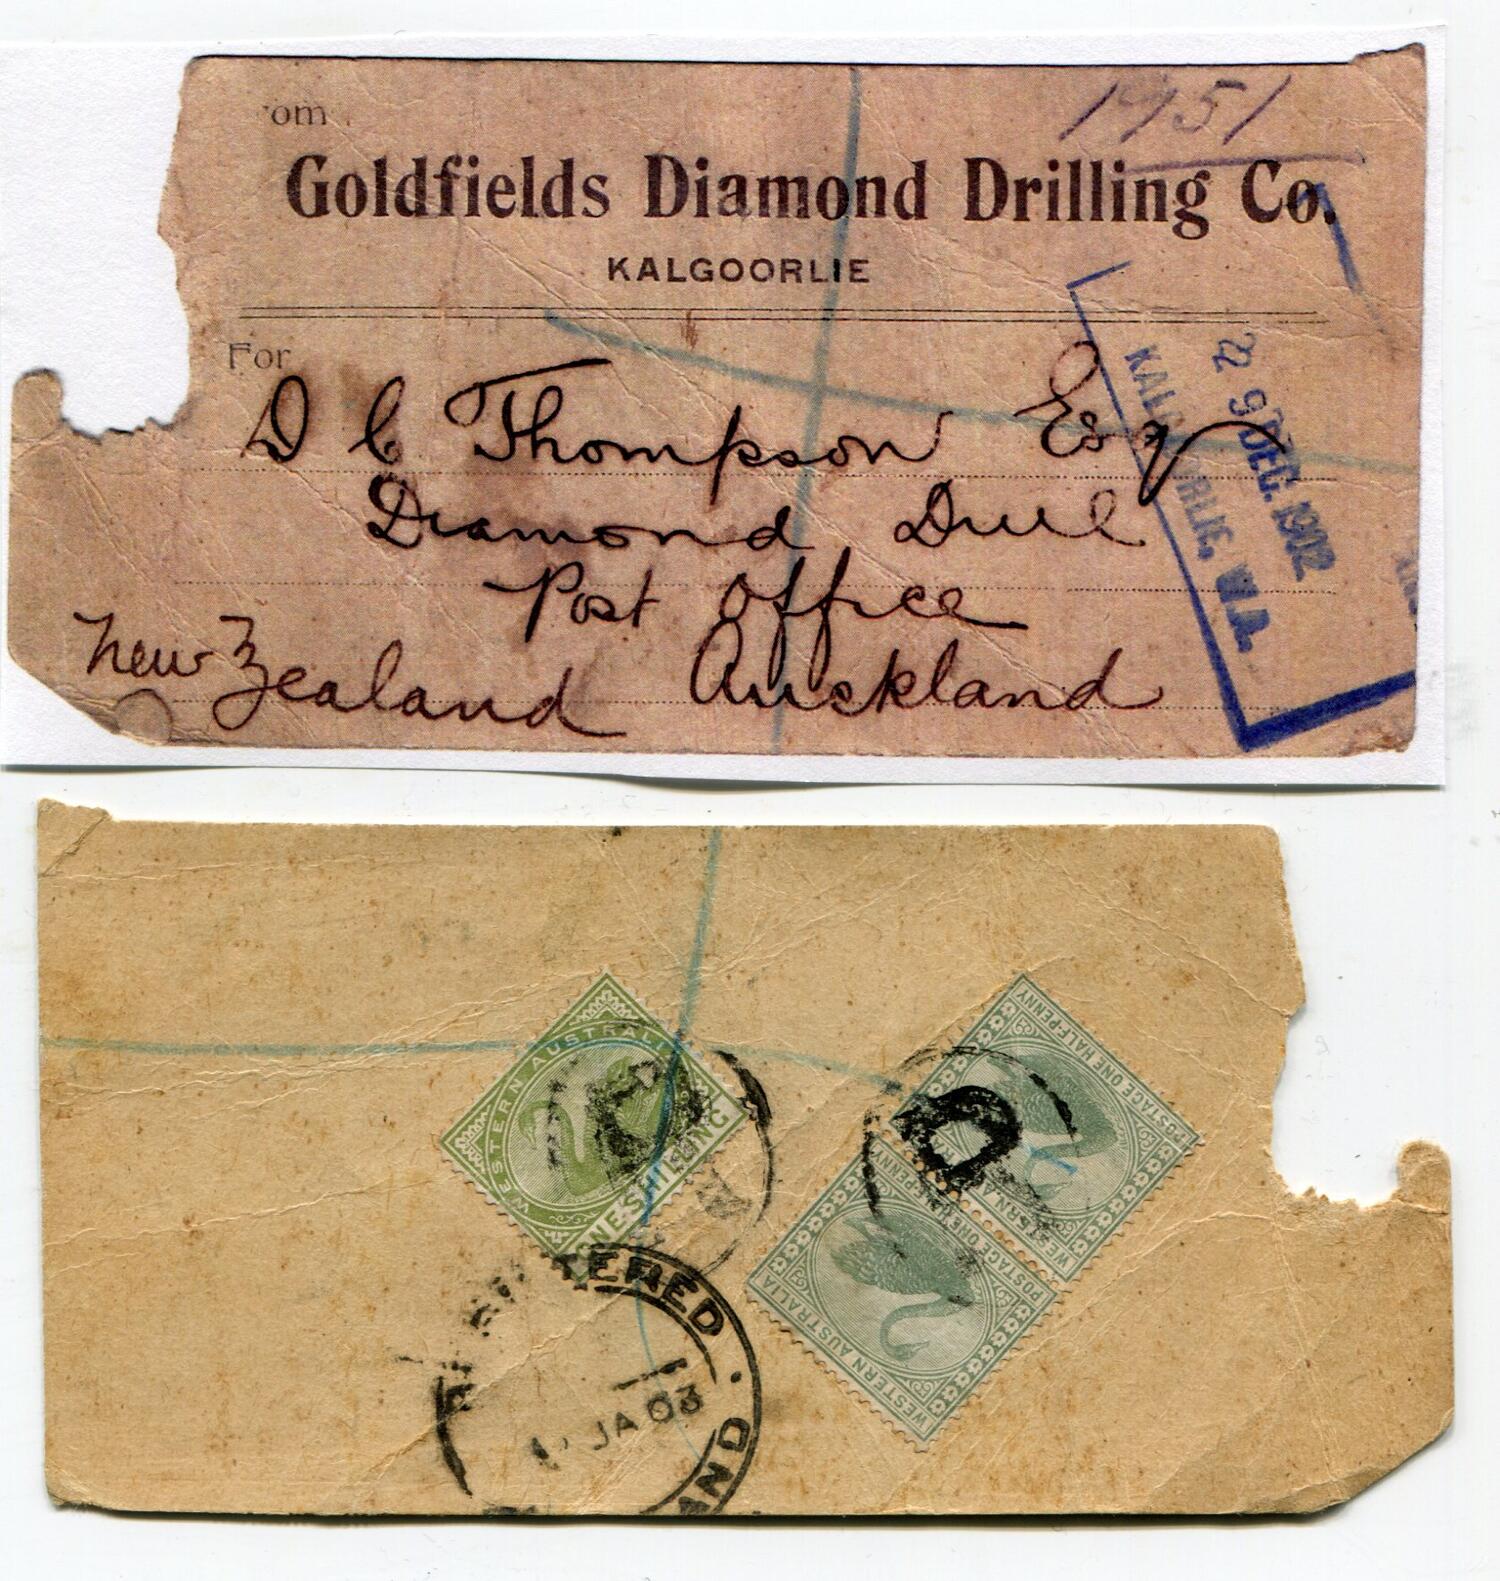 1951
om
Goldfields Diamond Drilling Co.
KALGOORLIE
For
D C Thompson Esq
Diamond Drill
Post Office
New Zealand Auckland
29 DEC. 1902
KALG RLIE, W.A.
WESTERN AUSTRALIA
ONE SHILLING
POSTAGE ONE HALF-PENNY
WESTERN A
WESTERN AUSTRALIA
POSTAGE ONE HALF-PENNY
TERED
JA 03
AND